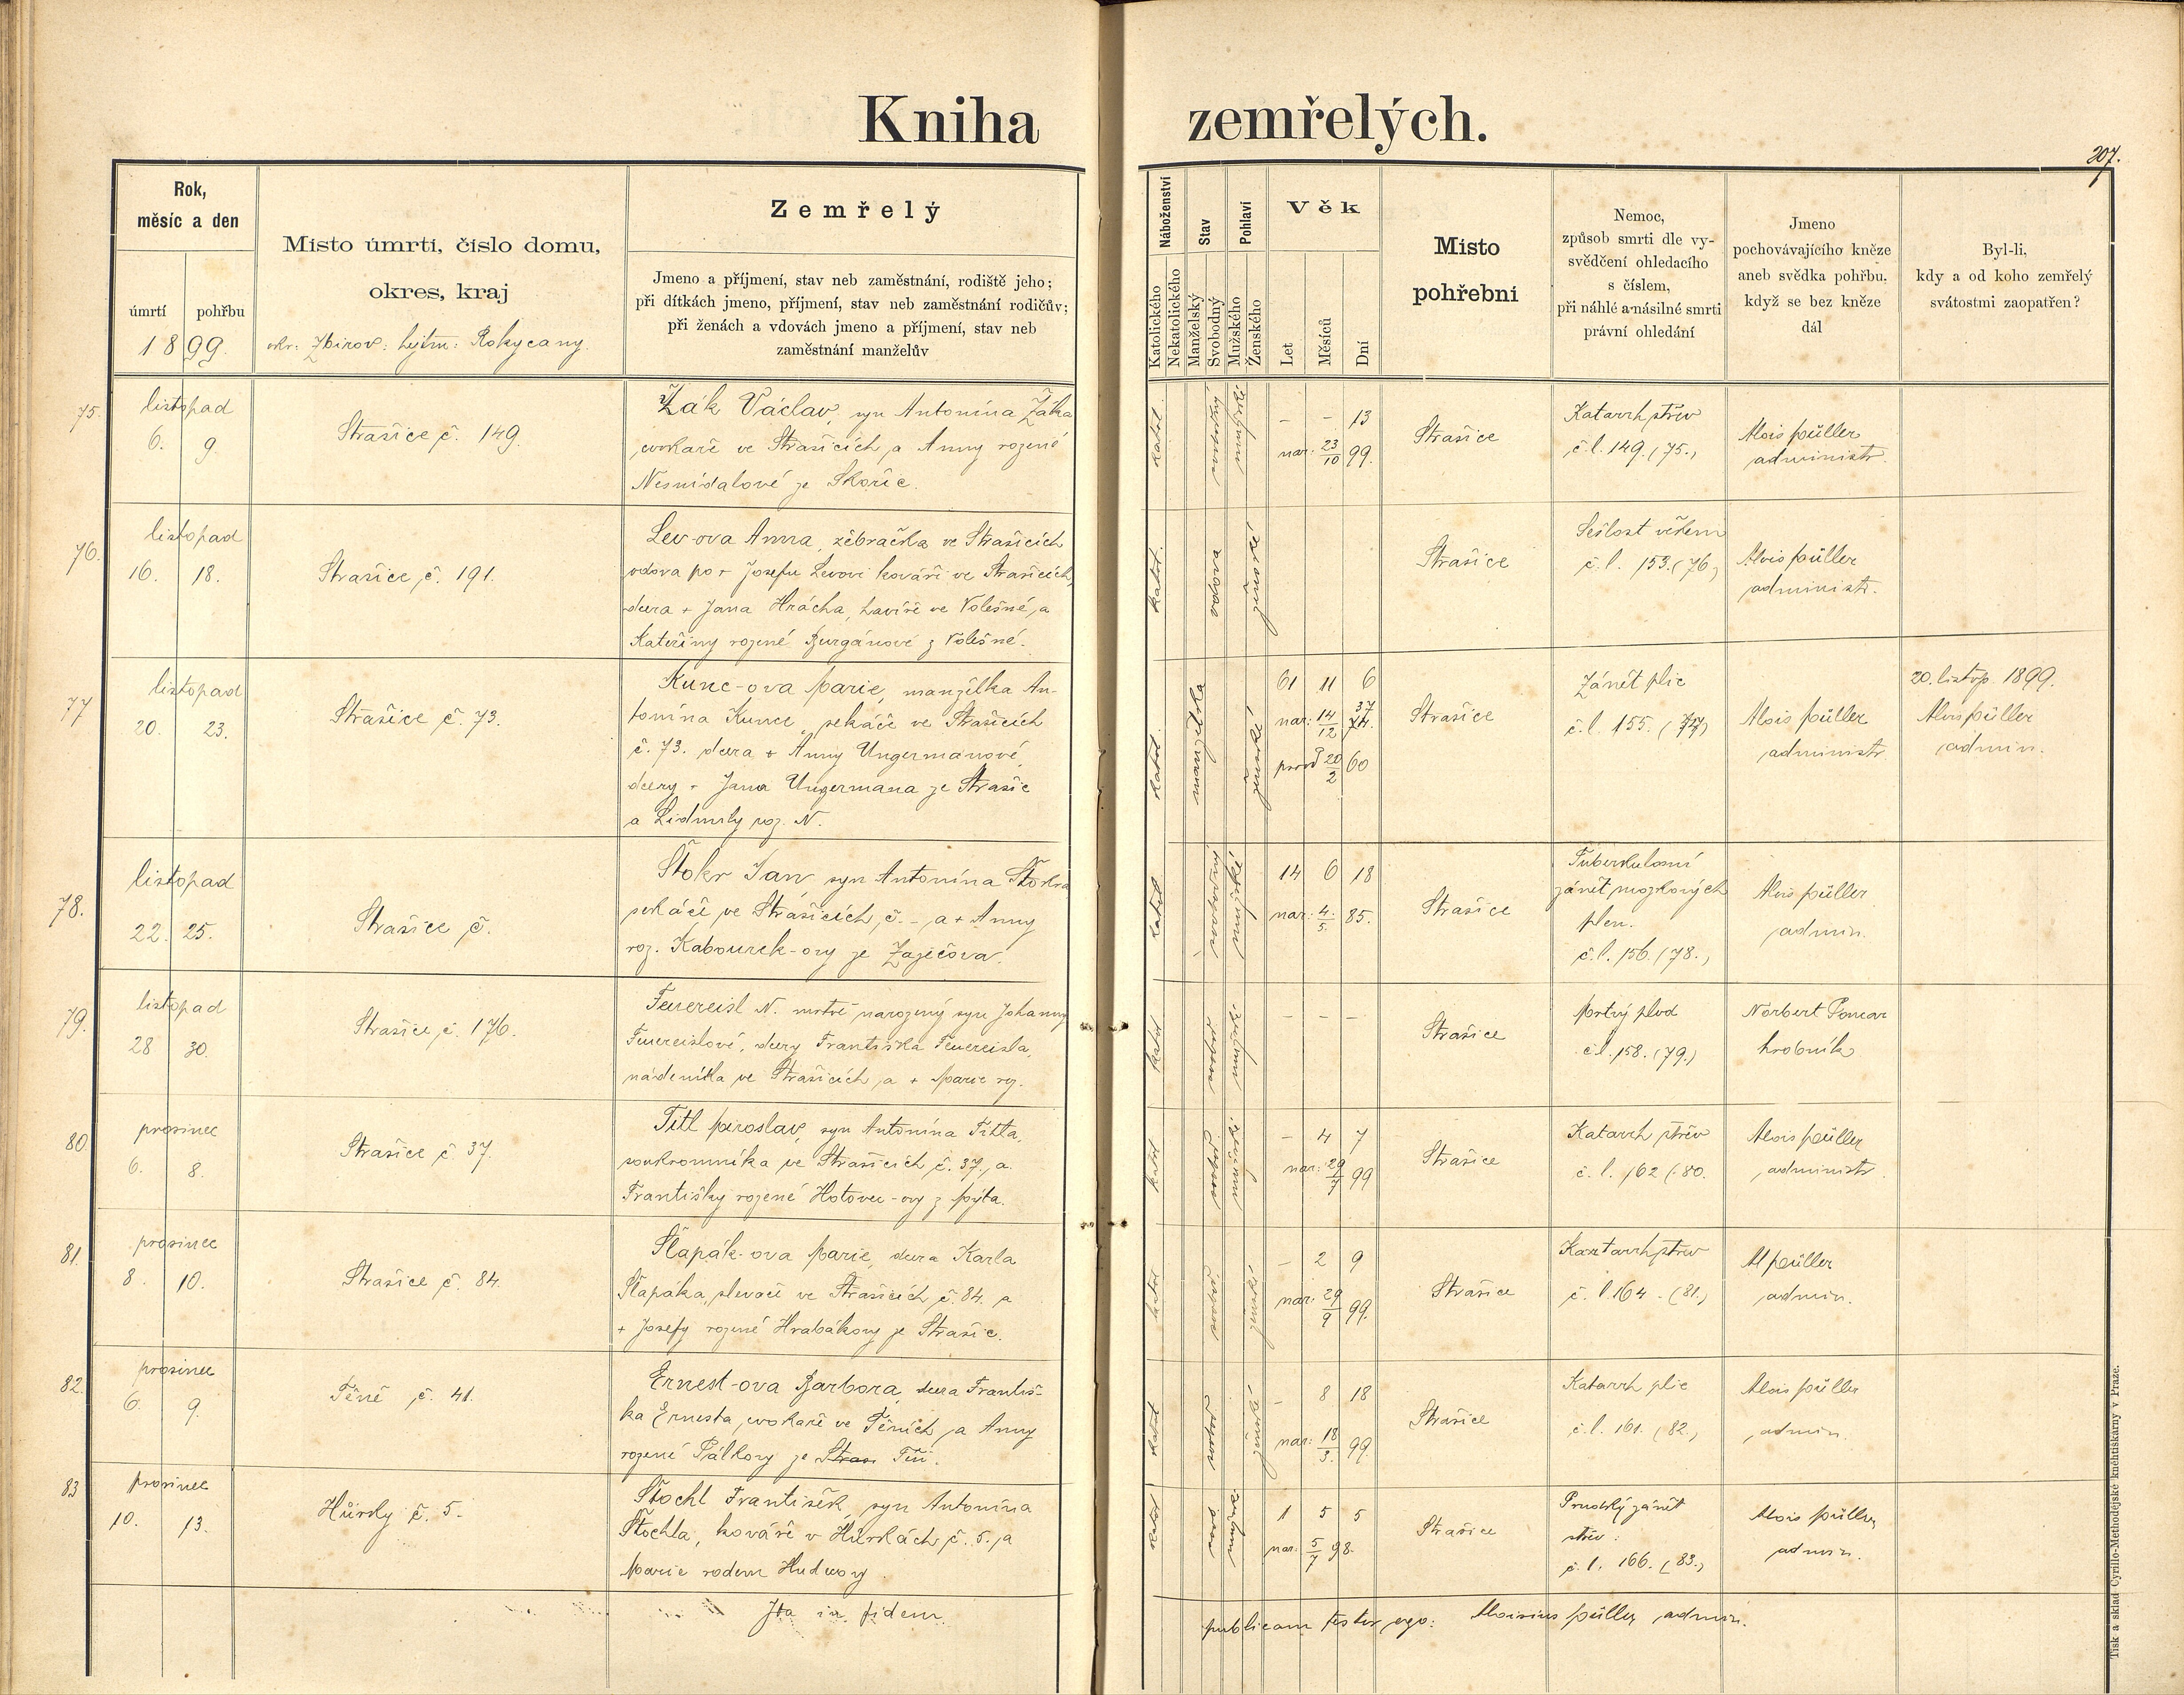 Kniha zemřelých.
207.
Rok,
měsíc a den
úmrtí
pohřbu
1899.
Místo úmrtí, číslo domu,
okres, kraj
okr: Zbirov: hejtm: Rokycany.
Zemřelý
Jmeno a příjmení, stav neb zaměstnání, rodiště jeho;
při dítkách jmeno, příjmení, stav neb zaměstnání rodičův;
při ženách a vdovách jmeno a příjmení, stav neb
zaměstnání manželův
Náboženství
Katolického
Nekatolického
Stav
Manželský
Svobodný
Pohlaví
Mužského
Ženského
Věk
Let
Měsíců
Dní
Místo
pohřební
Nemoc,
způsob smrti dle vy-
svědčení ohledacího
s číslem,
při náhlé a násilné smrti
právní ohledání
Jmeno
pochovávajícího kněze
aneb svědka pohřbu,
když se bez kněze
dál
Byl-li,
kdy a od koho zemřelý
svátostmi zaopatřen?
75.
listopad
6. 9.
Strašice č. 149.
Žák Václav, syn Antonína Žáka
cvokaře ve Strašicích, a Anny rozené
Nesnídalové ze Skořic.
katol.
svobodný
mužské
- - 13
nar: 23/10 99.
Strašice
Katarrh střev
č.l. 149. (75.)
Alois Müller
administr.
76.
listopad
16. 18.
Strašice č. 191.
Lev-ova Anna, žebračka ve Strašicích
vdova po + Josefu Levovi kováři ve Strašicích,
dcera + Jana Hrácha, havíře ve Volešné, a
Kateřiny rozené Burgánové z Volešné.
katol.
vdova
ženské
Strašice
Sešlost věkem
č.l. 153. (76.)
Alois Müller
administr.
77
listopad
20. 23.
Strašice č. 73.
Kunc-ova Marie, manželka An-
tonína Kunce, sekáče ve Strašicích
č. 73. dcera + Anny Ungermanové,
dcery + Jana Ungermana ze Strašic
a Lidmily roz. N.
katol.
manželská
ženské
61 11 6
nar: 14/12 37
20/2 60
Strašice
Zánět plic
č.l. 155. (77)
Alois Müller
administr
20. listop. 1899.
Alois Müller
admin.
78.
listopad
22. 25.
Strašice č.
Štokr Jan syn Antonína Štokra
sekáče ve Strašicích, č. - a + Anny
roz. Kabourek-ovy ze Zaječova.
katol
svobodný
mužské
14 6 18
nar: 4./5. 85.
Strašice
Tuberkulosní
zánět mozkových
plen.
č.l. 156. (78.)
Alois Müller
admin.
79.
listopad
28 30.
Strašice, č. 176.
Feuereisl N. mrtvě narozený syn Johanny
Feuereislové, dcery Františka Feuereisla,
nádeníka ve Strašicích, a + Marie roz.
katol
mužské
- - -
Strašice
Mrtvý plod
č.l. 158. (79.)
Norbert Poncar
hrobník
80
prosinec
6. 8.
Strašice č. 37.
Titl Miroslav, syn Antonína Titla,
soukromníka ve Strašicích č. 37., a
Františky rozené Hotovec-ovy z Mýta.
katol
mužské
- 4 7
nar: 29/7 99
Strašice
Katarrh střev
č. l. 162 (80.
Alois Müller
administr.
81.
prosinec
8. 10.
Strašice č. 84.
Šlapák-ova Marie, dcera Karla
Šlapáka, slevače ve Strašicích č. 84. a
+ Josefy rozené Hrabákovy ze Strašic.
katol
ženské
- 2 9
nar: 29/9 99.
Strašice
Katarrh střev
č. l. 164. (81.)
Al Müller
admin.
82.
prosinec
6. 9.
Těně č. 41.
Ernest-ova Barbora, dcera Františ-
ka Ernesta, cvokaře ve Těních, a Anny
rozené Pálkovy ze Stras Těň.
katol
ženské
- 8 18
nar: 18/3. 99.
Strašice
Katarrh plic
č.l. 161. (82.)
Alois Müller
admin.
83
prosinec
10. 13.
Hůrky č. 5.
Štochl František, syn Antonína
Štochla, kováře v Hůrkách, č. 5., a
Marie rodem Hudcovy.
katol
mužské
1 5 5
nar: 5/7 98.
Strašice
Prudký zánět
střev:
č.l. 166. (83.)
Alois Müller
admin.
Ita in fidem
publicam testor ego: Aloisius Müller, admin.
Tisk a sklad Cyrillo-Methodějské knihtiskárny v Praze.